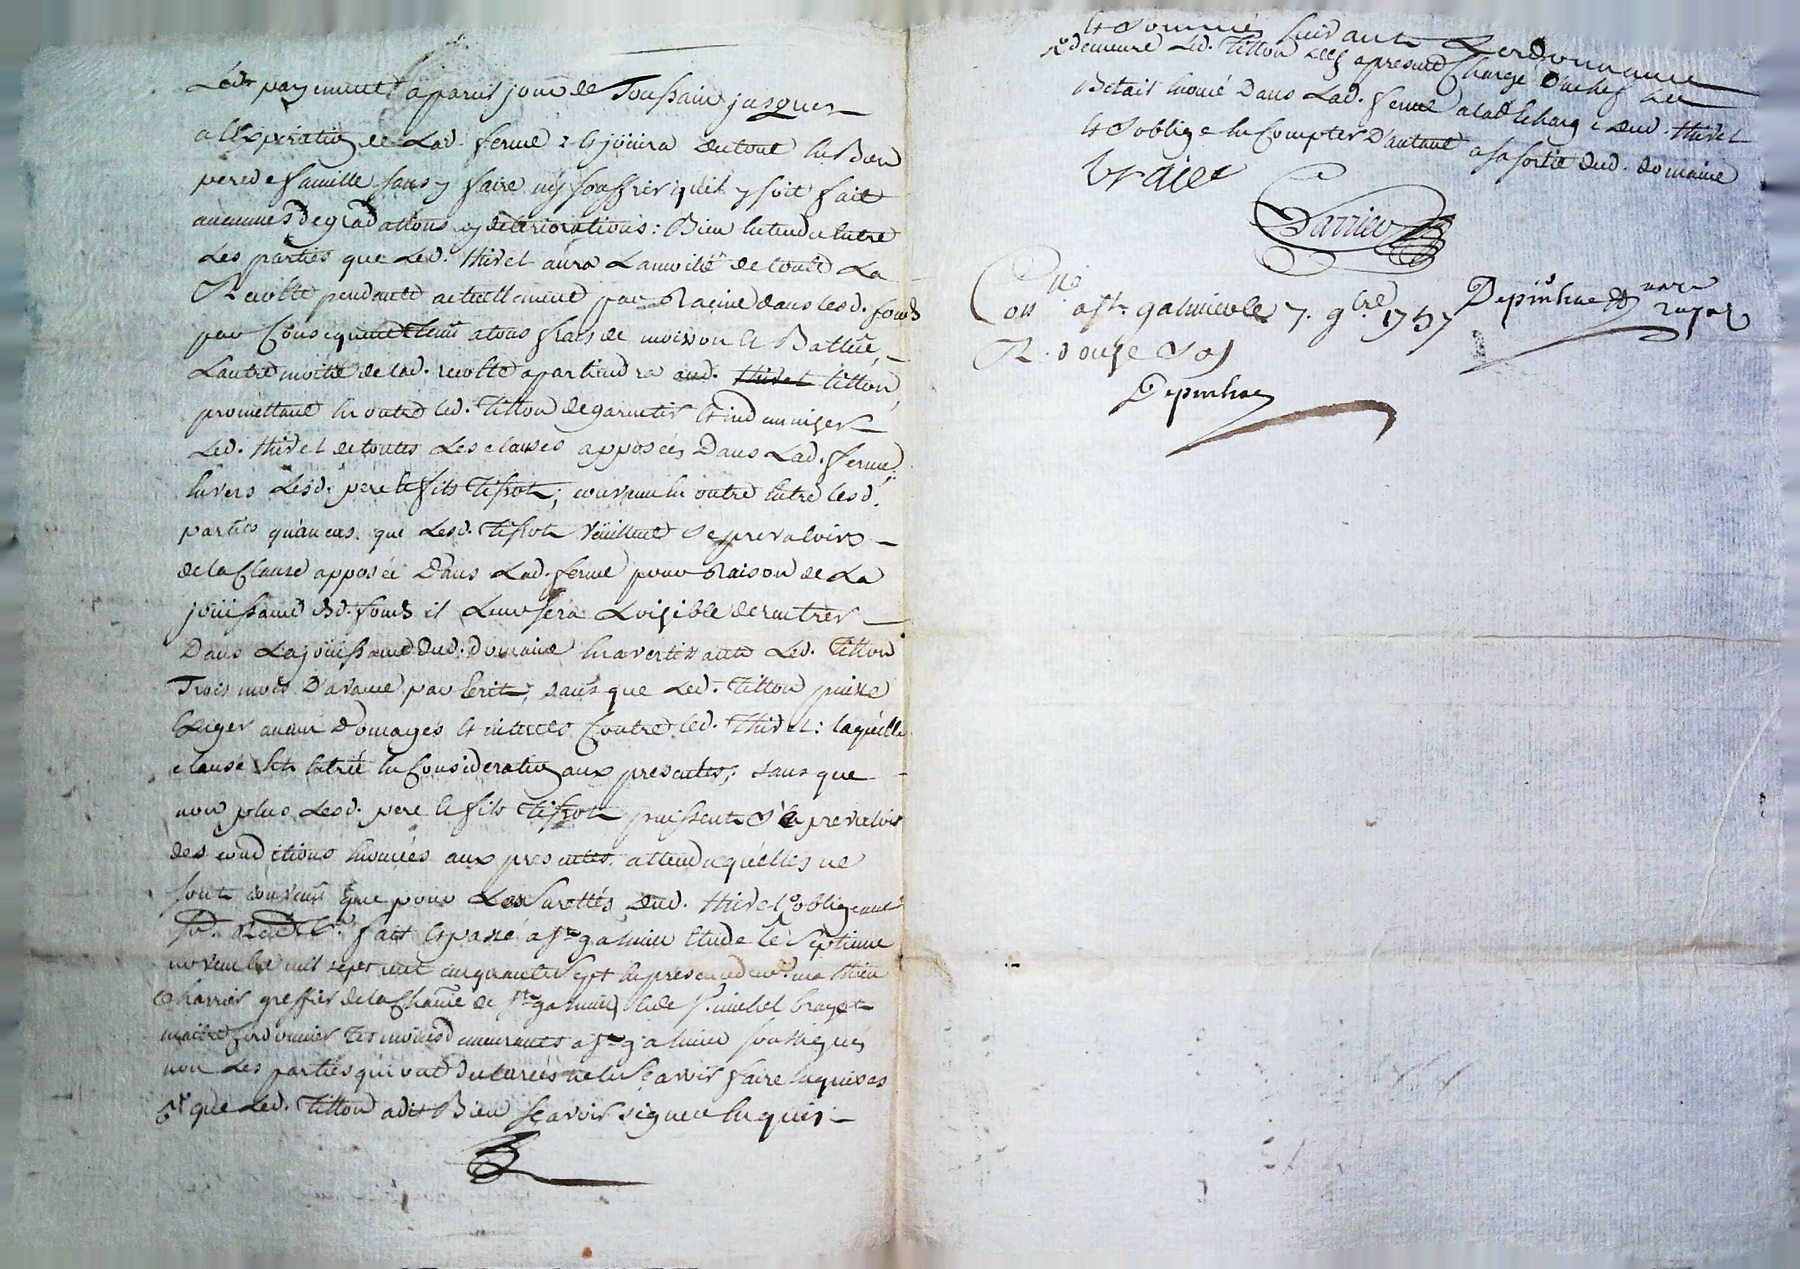 Led. payement a pareil jour de Toussain jusques
a l'Expiration de Lad. ferme : et jouira du tout en Bon
pere de famille sans y faire ny souffrir quil y soit fait
aucunnes degradations ny deteriorations : Bien entendu entre
Les parties que Led. thivel aura La moitié de toute La
Recolte pendante actuellement par Racine dans lesd. fonds
par Consequent a tous frais de moisson et Batture,
L'autre moitié de lad. recolte apartiendra aud. thivel titton,
promettant en outre led. titton de garentir et indemniser
Led. thivel de toutes Les clauses apposées Dans Lad. ferme
envers Lesd. pere et fils tissot ; convenu en outre entre lesd.
parties qu'au cas que Lesd. tissot veüillent se prevaloir
de la Clause apposée Dans Lad. ferme pour Raison de La
joüissance desd. fonds il Leur sera Loisible de rentrer
Dans La joüissance dud. Domaine en avertissant Led. titton
Trois mois D'avance par Ecrit, sans que Led. titton puisse
Exiger aucun Domages et interets Contre led. thivel : laquelle
clause est entrée en Consideration aux presentes ; sans que
non plus Lesd. pere et fils tissot puissent s'en prevaloir
des conditions enoncées aux presentes attendu quelles ne
sont convenues que pour Les Surettés dud. thivel obligeant
fait et passé a st galmier Etude le septieme
novembre mil sept cent cinquante sept en presence de me. mathieu
Charrier greffier de la Chatnie de st galmier et de sr. michel brayet
maitre Cordonnier temoins demeurants a st galmier soussignés
non Les parties qui ont declarées ne le sçavoir faire enquises
et que Led. titton a dit Bien sçavoir signer enquis
et sommés suivant Lordonnance
Et demeure Led. titton des a present Chargé Du chef de
Betail enoncé Dans Lad. ferme a la decharge dud. thivel
et s'oblige en Compter D'autant a sa sortie dud. domaine
braiet
Charrier
Collé a st. galmier le 7. 9bre. 1757 Depinhac nore royal
R. douze sos
Depinhac